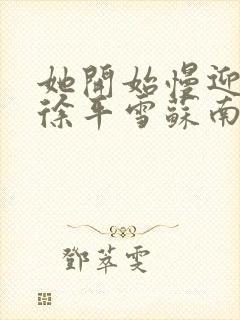 她開始慢迎
徐平雪蘇南
鄧萃雯